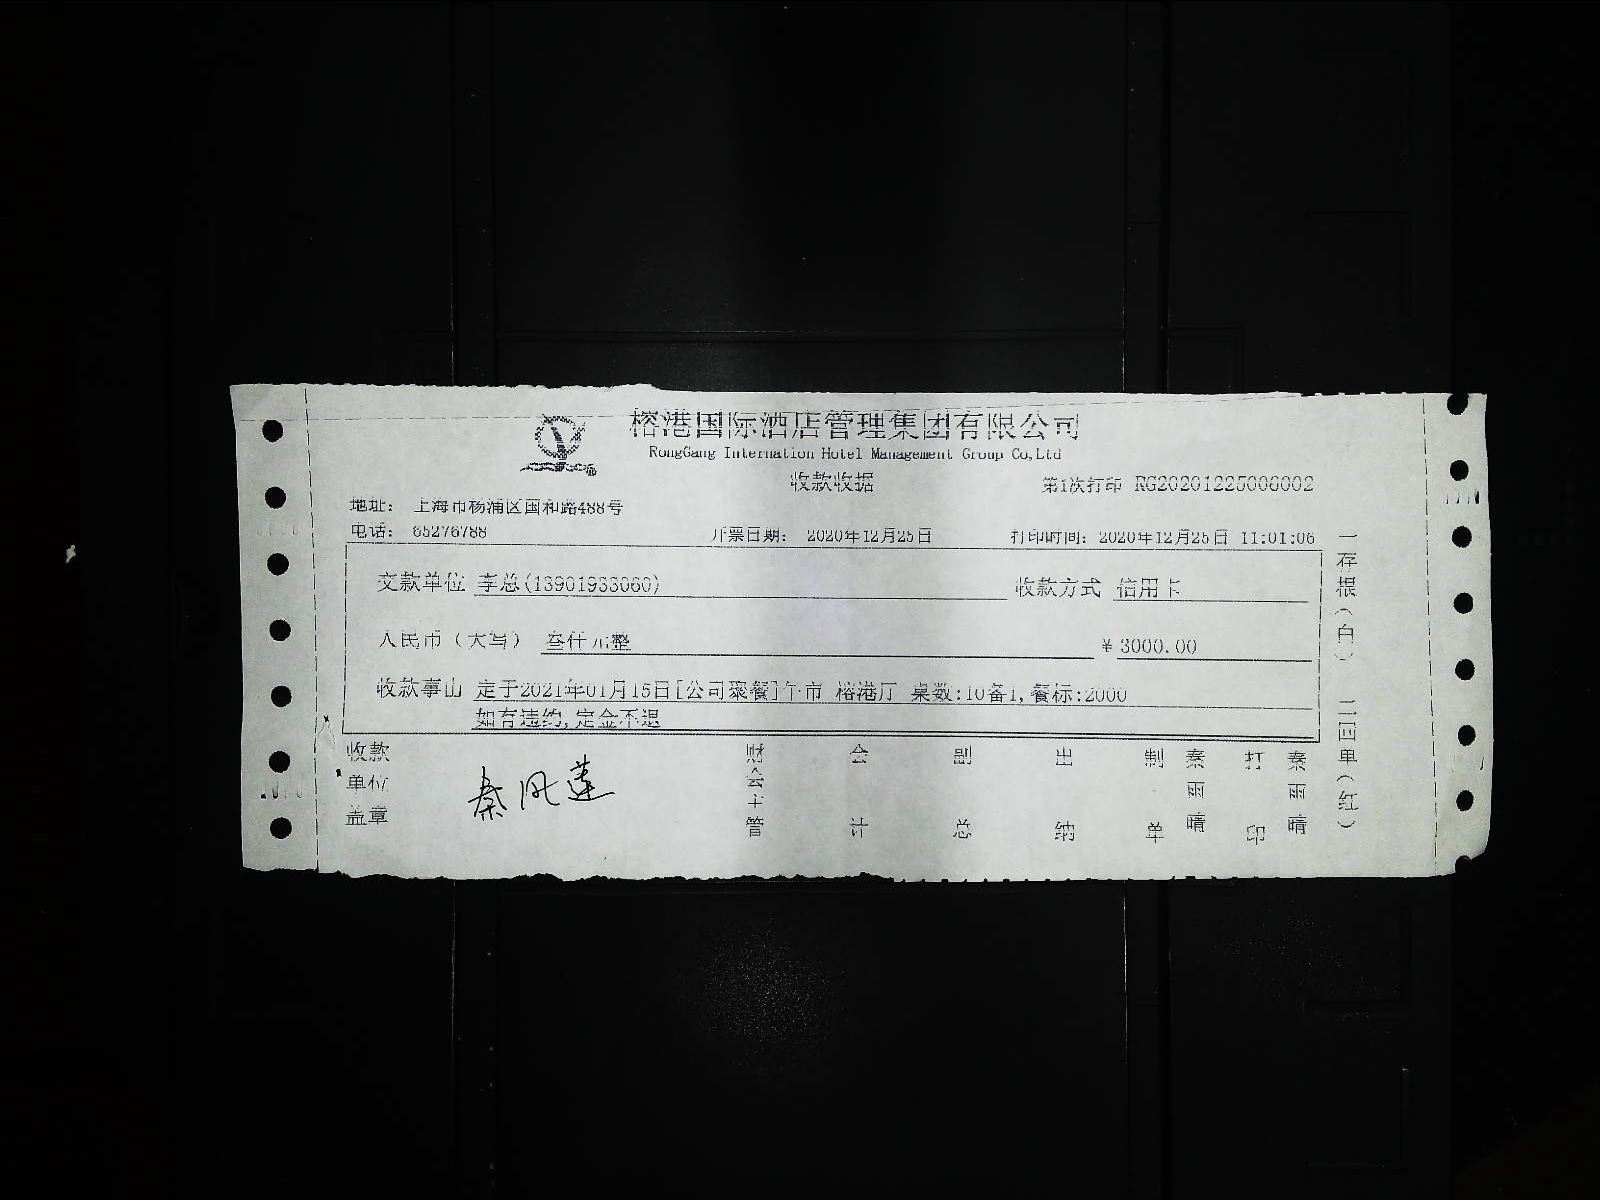 榕港国际酒店管理集团有限公司
RongGang Internation Hotel Management Group Co,Ltd
收款收据
第1次打印 RG20201225006002
地址： 上海市杨浦区国和路488号
电话： 65276788 开票日期： 2020年12月25日 打印时间：2020年12月25日 11:01:06
交款单位 李总(13901933060) 收款方式 信用卡
人民币（大写） 叁仟元整 ￥3000.00
收款事由 定于2021年01月15日[公司聚餐]午市 榕港厅 桌数:10备1,餐标:2000
如有违约,定金不退
收款单位盖章 秦凤莲 财会主管 会计 副总 出纳 制单 秦雨晴 打印 秦雨晴
一存根（白） 二回单（红）